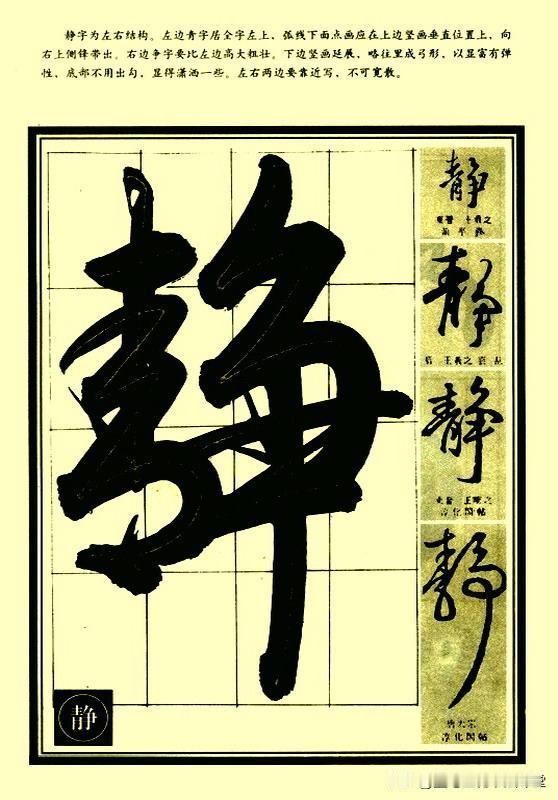 静字为左右结构。左边青字居全字左上，弧线下面点画应在上边竖画垂直位置上，向
右上侧锋带出。右边争字要比左边高大粗壮。下边竖画延展，略往里成弓形，以显富有弹
性，底部不用出勾，显得潇洒一些。左右两边要靠近写，不可宽散。
静
静
静
静
王羲之
静
王羲之
淳化阁帖
静
唐太宗
淳化阁帖
静